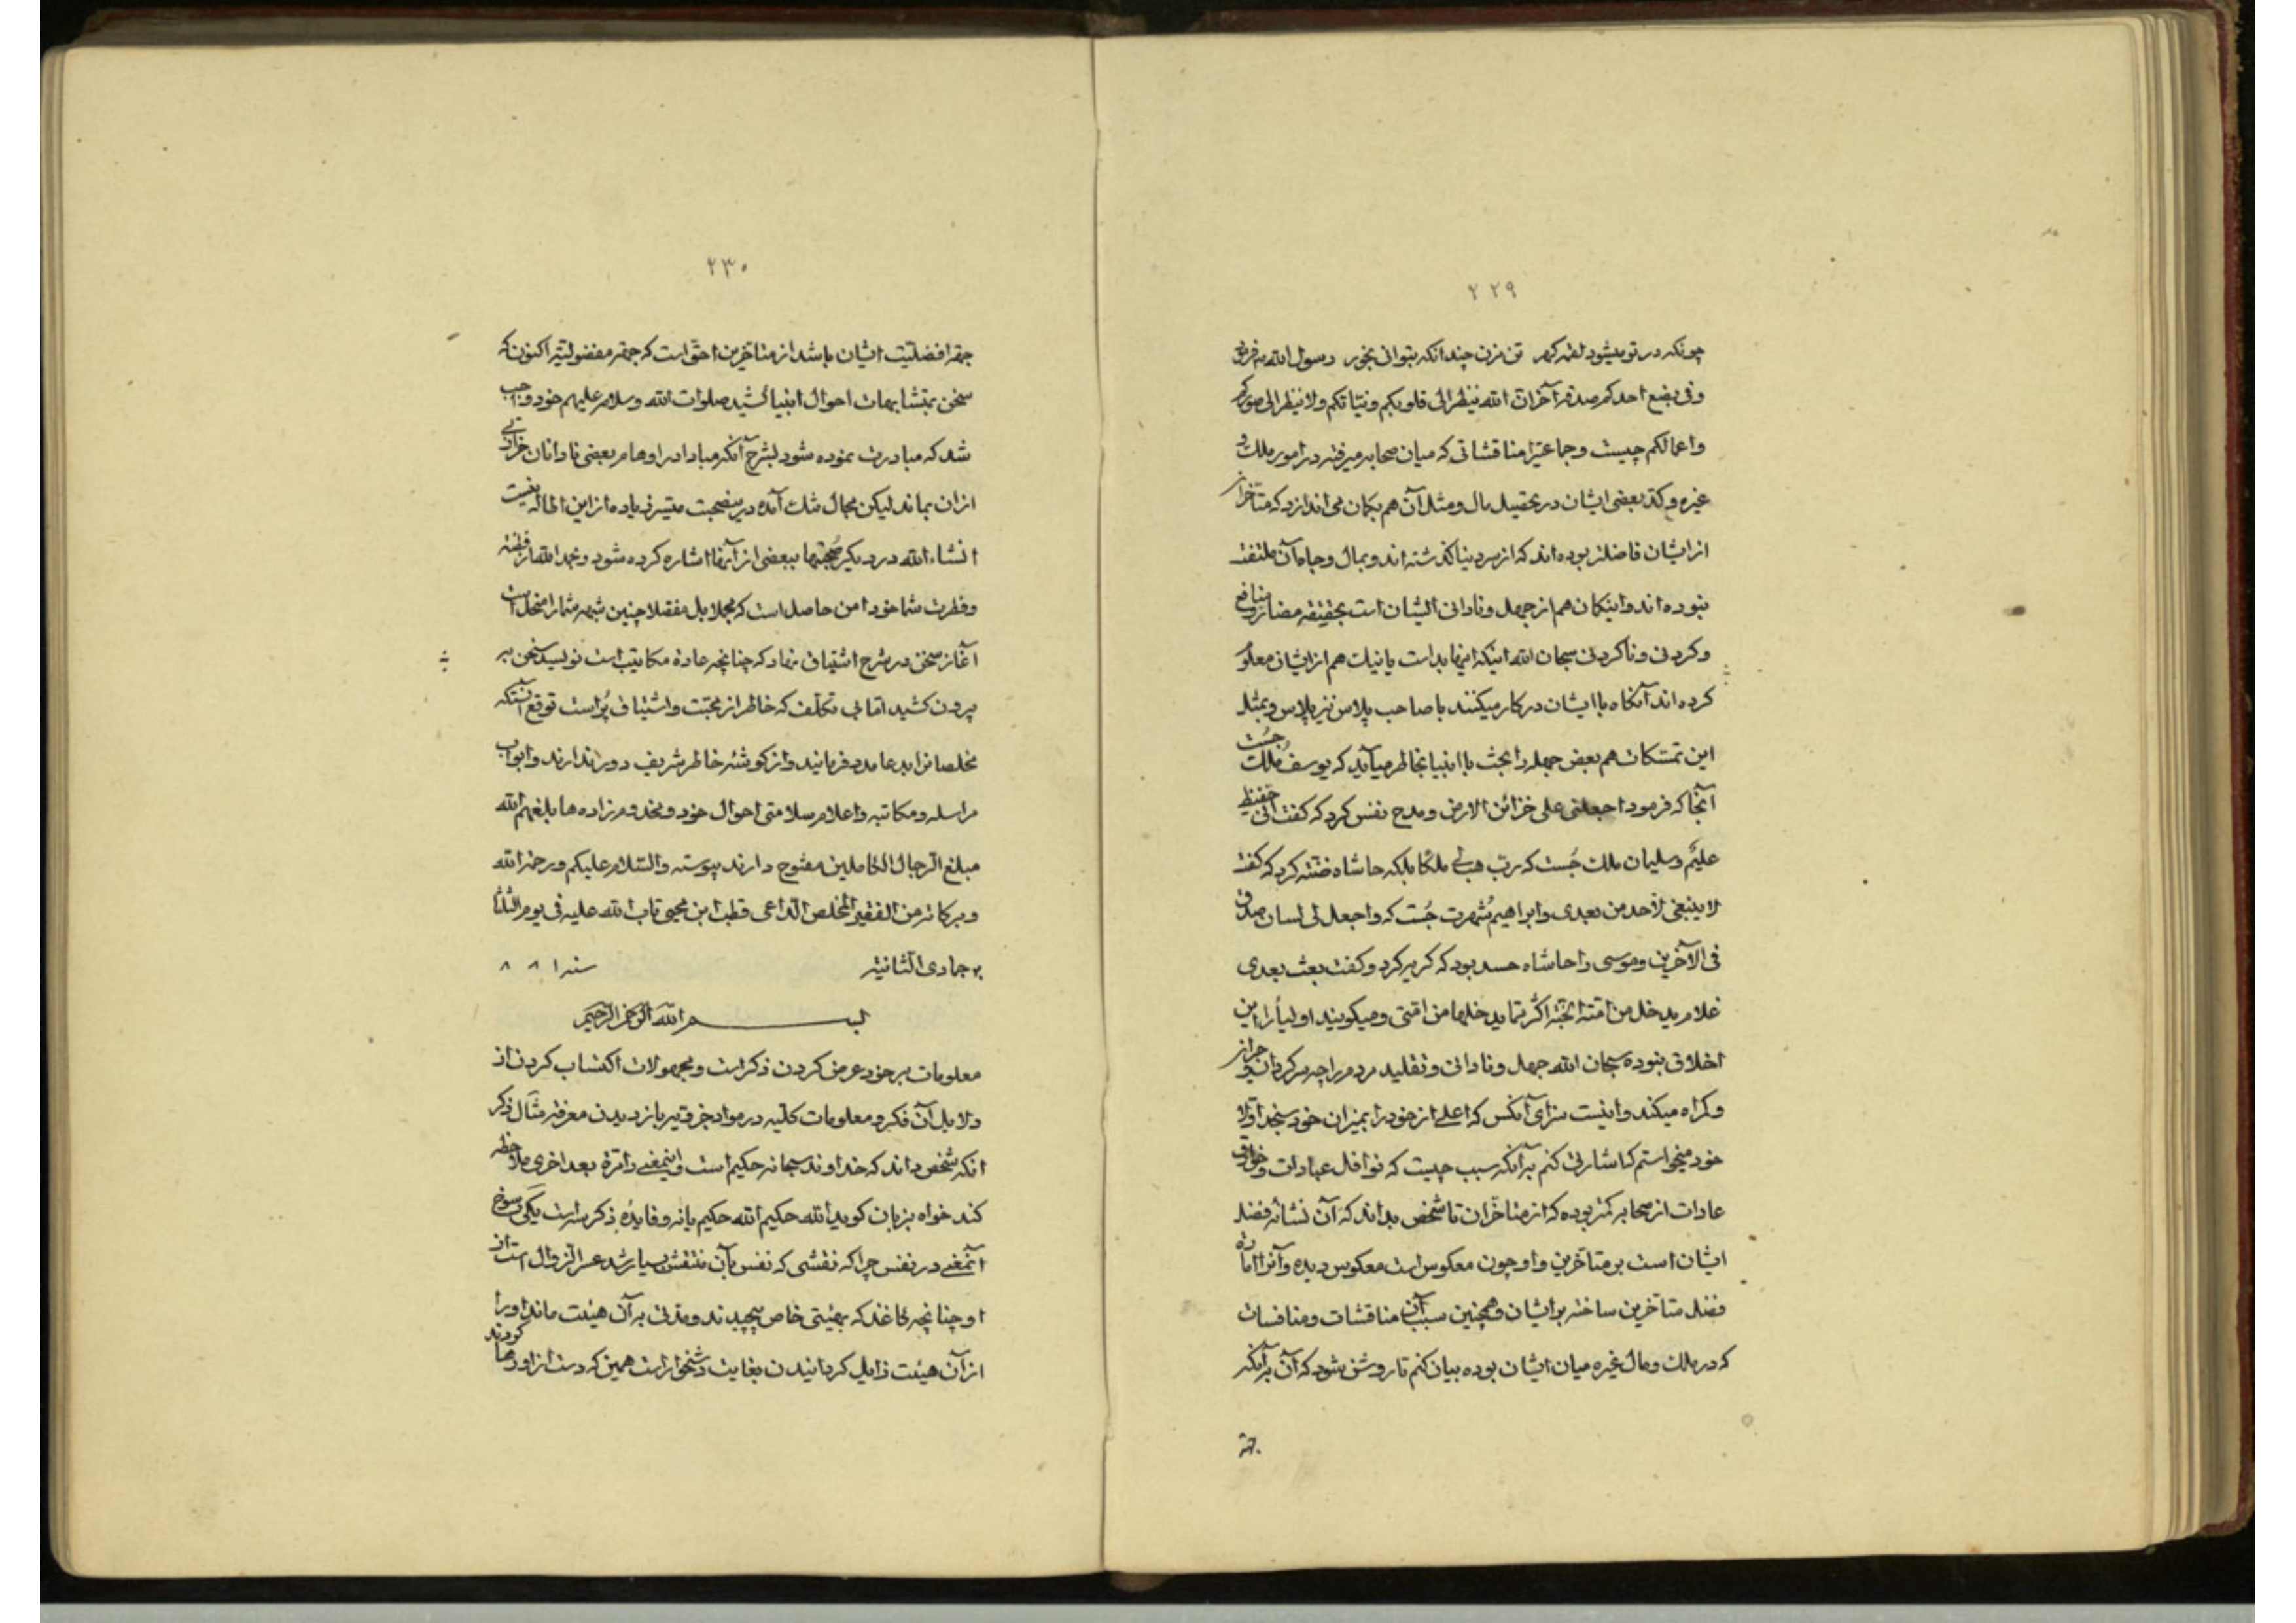 ٢٢٩
چونکه در تو میشود لقمه گهر تن مزن چندانکه بتوانی بخور رسول الله میفرماید
و فی بضع احدکم صدقة آخر ان الله ینظر الی قلوبکم و نیاتکم و لا ینظر الی صورکم
و اعمالکم چیست و جماعتیرا مناقشاتی که میان صحابه میرفته در امور ملک و
غیره و کد بعضی ایشان در تحصیل مال و مثل آن هم بکمان می اندازد که متأخران
از ایشان فاضلتر بوده اند که از سر دنیا گذشته اند و بمال و جاه آن ملتفت
نبوده اند و اینکمان هم از جهل و نادانی ایشان است بحقیقة مضار و منافع
و کردنی و ناکردنی سبحان الله اینکه اینها بد است یا نیک هم از ایشان معلوم
کرده اند آنکاه با ایشان در کار میکنند با صاحب پلاس نیز پلاس و بمثل
این تمسکات هم بعض جهله را بحث با انبیا بخاطر میآید که یوسف ملک جست
آنجا که فرمود اجعلنی علی خزائن الارض و مدح نفس کرد که کفت انی حفیظ
علیم و سلیمان ملک جست که رب هب لی ملکا بلکه حاشاه ضنت کرد که کفت
لا ینبغی لاحد من بعدی و ابراهیم شهرت جست که و اجعل لی لسان صدق
فی الآخرین و موسی را حاشاه حسد بود که کریه کرد و کفت بعث بعدی
غلام یدخل من امته الجنة اکثر مما یدخلها من امتی و میکویند اولیأ را این
اخلاق نبوده سبحان الله جهل و نادانی و تقلید مردم را چه سرکردان و حیران
و کمراه میکند و اینست سزای آنکس که اعلی از خود را بمیزان خود سنجد اولا
خود میخواستم که اشارتی کنم بر آنکه سبب چیست که نوافل عبادات و خوارق
عادات از صحابه کمتر بوده که از متاخران تا شخص بداند که آن نشانه فضل
ایشان است بر متأخرین و او چون معکوس است معکوس دیده و آنرا اماره
فضل متأخرین ساخته بر ایشان و همچنین سبب آن مناقشات و منافسات
که در ملک و مال غیره میان ایشان بوده بیان کنم تا روشن شود که آن بر آنکه
جهة
٢٣٠
جهة افضلیت ایشان باشد از متأخرین احق است که جهة مفضولیة اکنون که
سخن بمتشابهات احوال انبیا کشید صلوات الله و سلامه علیهم خود واجب
شد که مبادرت نموده شود بشرح آنکه مبادا در اوهام بعضی نادانان خزازتی
از آن بماند لیکن مجال تنک آمده در ینصحبت متیسر زیاده از این اطاله نیست
انشاء الله در دیکر صحبتها ببعضی از آنها اشاره کرده شود و بحمد الله از فطنة
و فطرت شما خود امن حاصل است که مجملا بل مفصلا چنین شبهه شما را منحل است
آغاز سخن در شرح اشتیاق نهاد که چنانچه عادة مکاتیب است نویسد سخن سر
برون کشید اما بی تکلف که خاطر از محبت و اشتیاق پر است توقع آنستکه
مخلصانرا بدعا مدد فرمائید و از کوشه خاطر شریف دور ندارند و ابواب
مراسله و مکاتبه و اعلام سلامتی احوال خود و مخدوم زاده ها بلغهم الله
مبلغ الرجال الکاملین مفتوح دارند پیوسته و السلام علیکم و رحمة الله
و برکاته من الفقیر المخلص الداعی قطب ابن محیی تاب الله علیه فی یوم الثلثا
جمادی الثانیة سنه ٨٨١
بسم الله الرحمن الرحیم
معلومات بر خود عرض کردن ذکر است و مجهولات اکتساب کردن از
دلایل آن فکر و معلومات کلیه در مواد جزئیه باز دیدن معرفة مثال ذکر
آنکه شخص داند که خداوند سبحانه حکیم است و اینمعنی را مرة بعد اخری ملاحظه
کند خواه بزبان کوید الله حکیم الله حکیم یا نه و فایده ذکر سه است یکی رسوخ
آنمعنی در نفس چرا که نقشی که نفس بآن منتقش بسیار شد عسر الزوال است از
او چنانچه کاغذ که بهیئتی خاص پیچیدند و مدتی بر آن هیئت ماند او را
از آن هیئت زایل کردانیدن بغایت دشخوار است همین که دست از او رها کردند